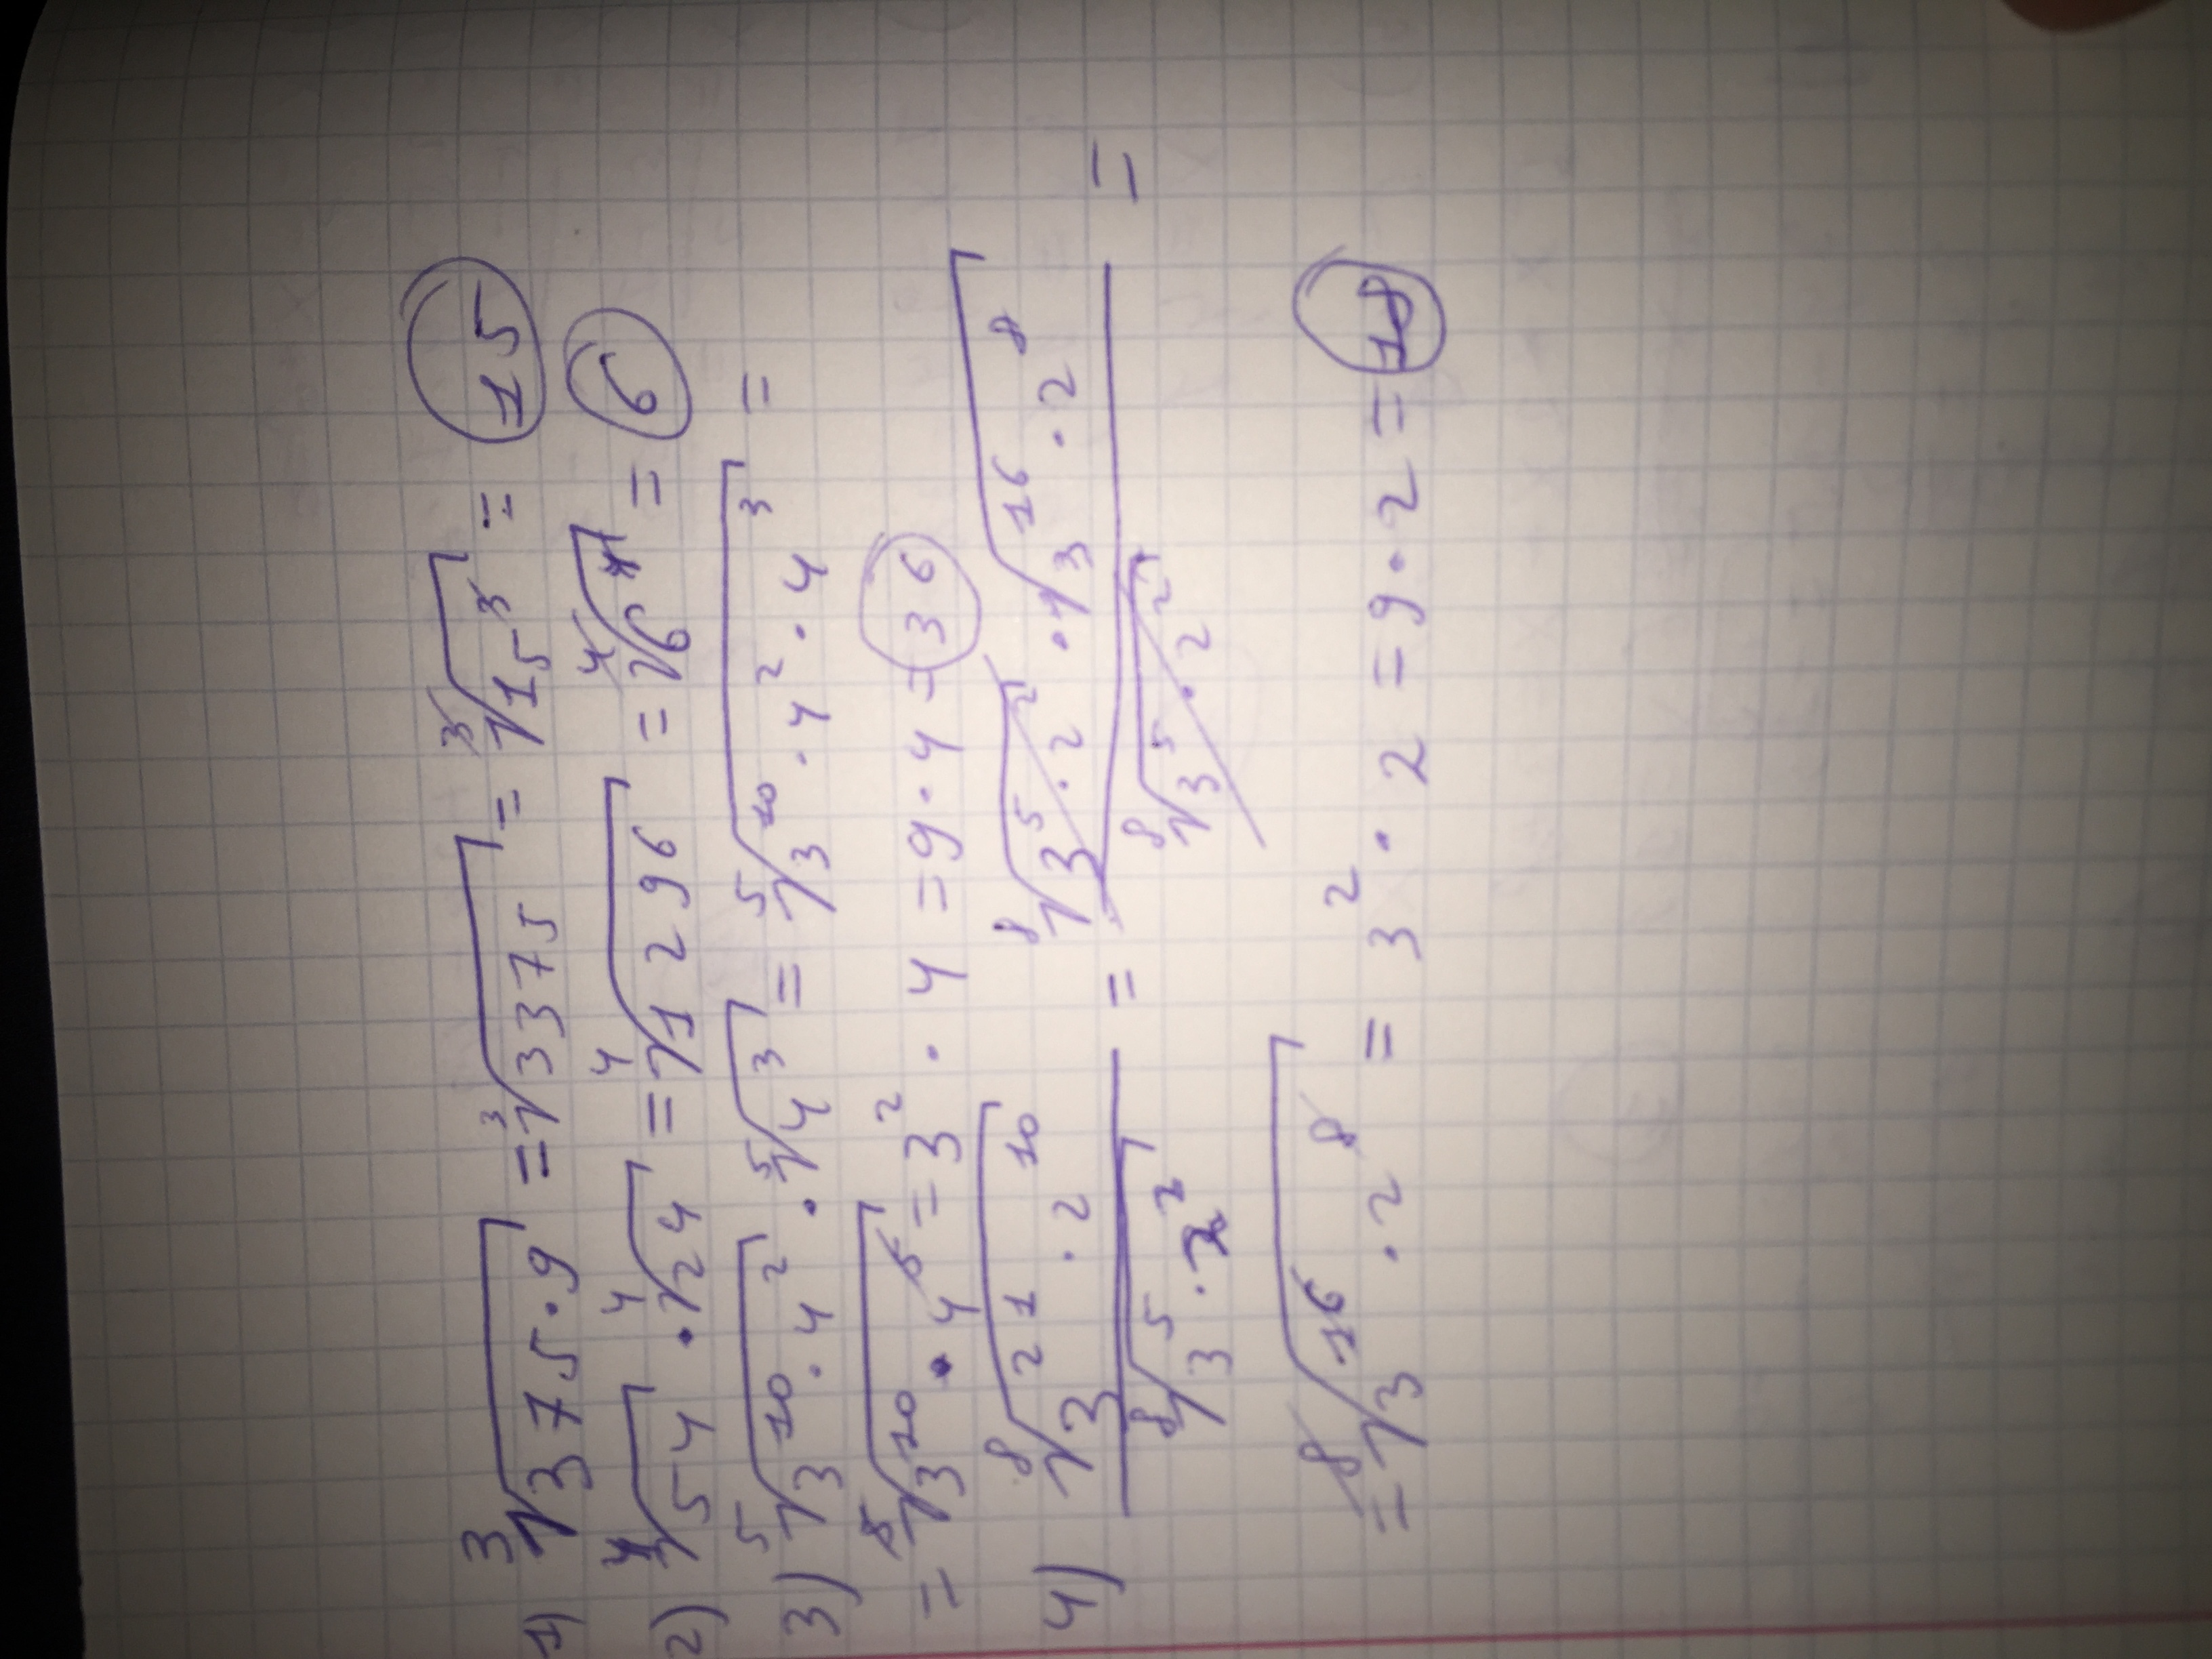 1) ∛(375·9) = ∛3375 = ∛(15³) = 15
2) ∜54 · ∜24 = ∜1296 = ∜(6⁴) = 6
3) ⁵√(3¹⁰·4²) · ⁵√(4³) = ⁵√(3¹⁰·4²·4³) =
= ⁵√(3¹⁰·4⁵) = 3²·4 = 9·4 = 36
4) ⁸√(3²¹·2¹⁰) / ⁸√(3⁵·2²) = ⁸√(3⁵·2²) · √(3¹⁶·2⁸) / ⁸√(3⁵·2²) =
= ⁸√(3¹⁶·2⁸) = 3²·2 = 9·2 = 18